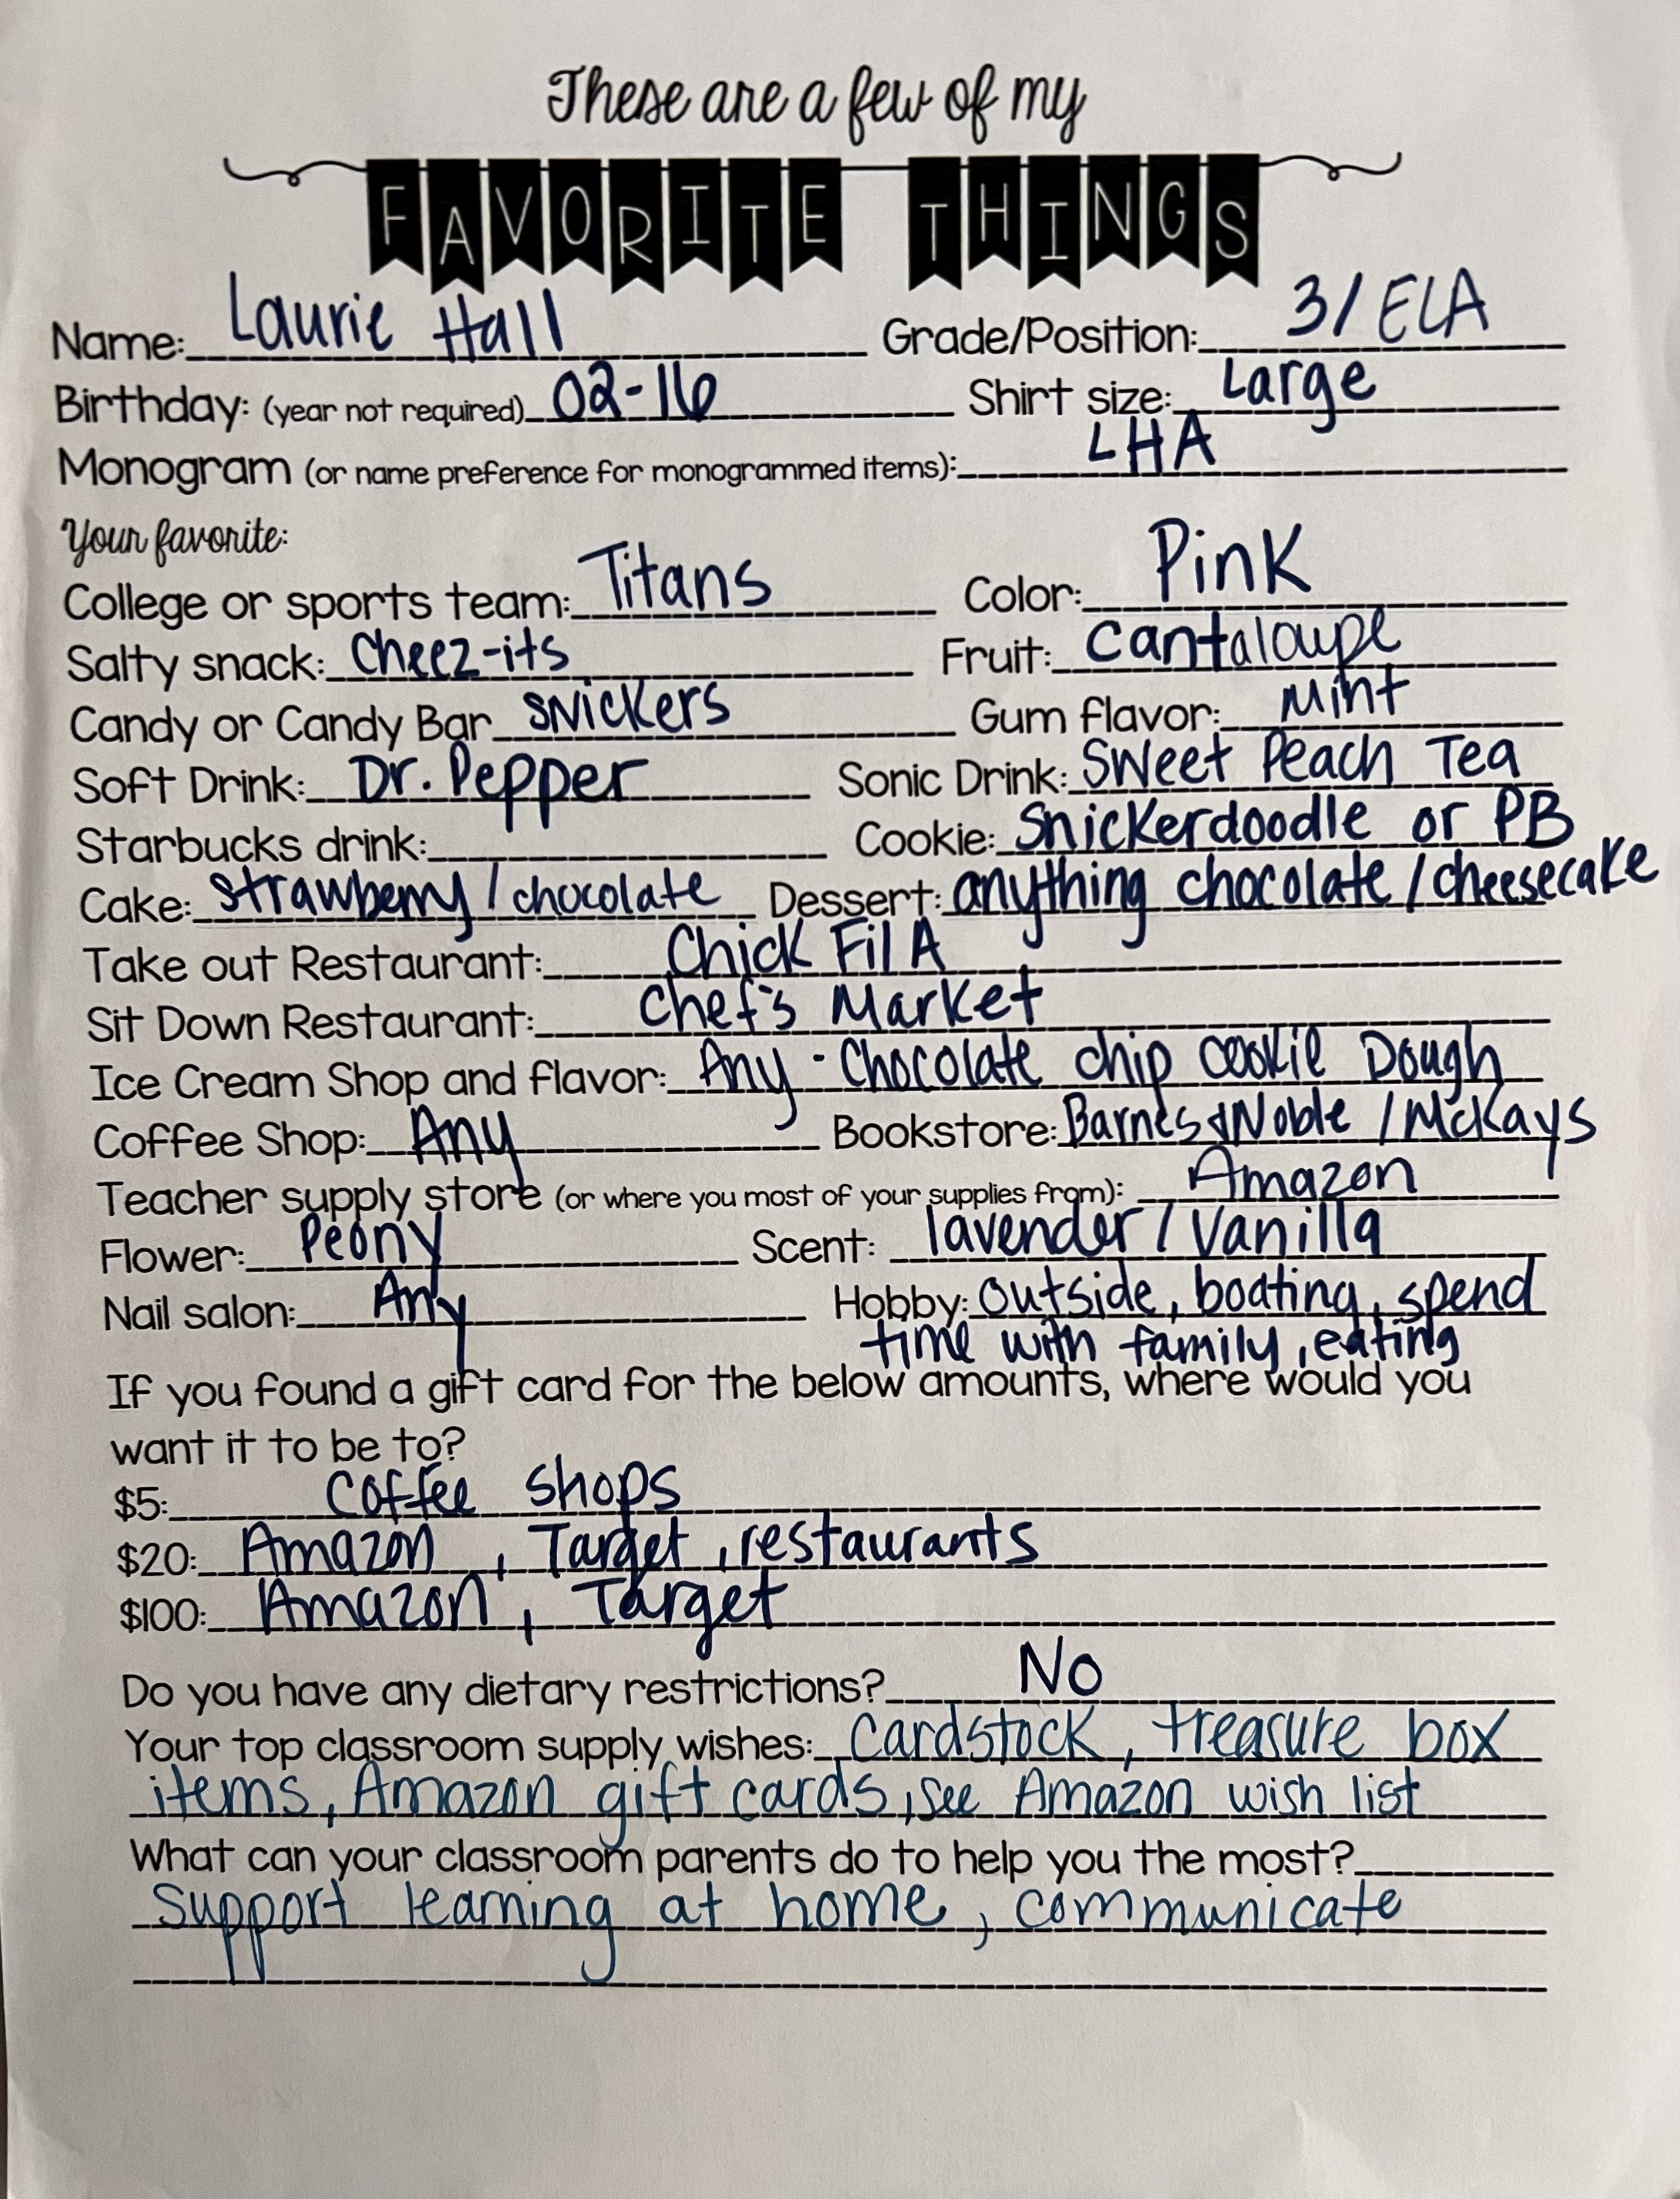 These are a few of my
FAVORITE THINGS
Name: Laurie Hall Grade/Position: 3/ELA
Birthday: (year not required) 02-16 Shirt size: Large
Monogram (or name preference for monogrammed items): LHA
Your favorite:
College or sports team: Titans Color: Pink
Salty snack: Cheez-its Fruit: cantaloupe
Candy or Candy Bar snickers Gum flavor: Mint
Soft Drink: Dr. Pepper Sonic Drink: Sweet Peach Tea
Starbucks drink: Cookie: Snickerdoodle or PB
Cake: strawberry/chocolate Dessert: anything chocolate/cheesecake
Take out Restaurant: Chick Fil A
Sit Down Restaurant: Chef's Market
Ice Cream Shop and flavor: Any - Chocolate chip cookie Dough
Coffee Shop: Any Bookstore: Barnes & Noble / McKays
Teacher supply store (or where you most of your supplies from): Amazon
Flower: Peony Scent: lavender/Vanilla
Nail salon: Any Hobby: outside, boating, spend
time with family, eating
If you found a gift card for the below amounts, where would you
want it to be to?
$5: Coffee shops
$20: Amazon, Target, restaurants
$100: Amazon, Target
Do you have any dietary restrictions? No
Your top classroom supply wishes: Cardstock, treasure box
items, Amazon gift cards, see Amazon wish list
What can your classroom parents do to help you the most?
support learning at home, communicate